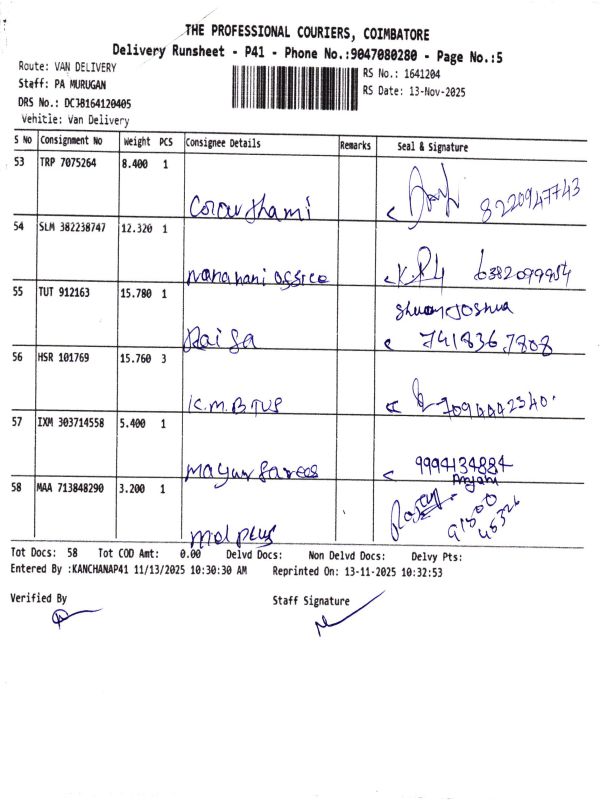 THE PROFESSIONAL COURIERS, COIMBATORE
Delivery Runsheet - P41 - Phone No.:9047080280 - Page No.:5
Route: VAN DELIVERY
RS No.: 1641204
Staff: PA MURUGAN
RS Date: 13-Nov-2025
DRS No.: DCJ8164120405
Vehitle: Van Delivery
S No Consignment No Weight PCS Consignee Details Remarks Seal & Signature
53 TRP 7075264 8.400 1
8220947743
54 SLM 382238747 12.320 1
6382099954
55 TUT 912163 15.780 1
Joshua
Raisa 7418367808
56 HSR 101769 15.760 3
K.M.B TUP
57 IXM 303714558 5.400 1
mayur sarees 9994134884
Anjani
58 MAA 713848290 3.200 1
mdl plus
Tot Docs: 58 Tot COD Amt: 0.00 Delvd Docs: Non Delvd Docs: Delvy Pts:
Entered By :KANCHANAP41 11/13/2025 10:30:30 AM Reprinted On: 13-11-2025 10:32:53
Verified By Staff Signature